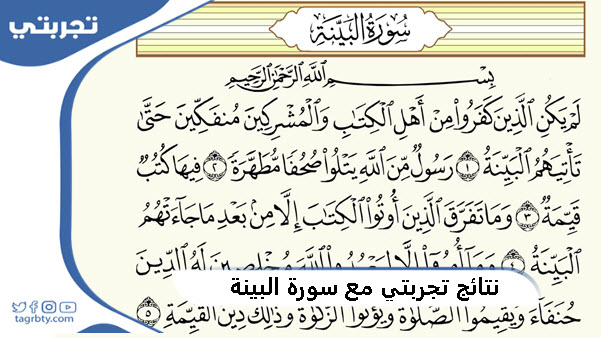 تجربتي
سُورَةُ البَيِّنَةِ
بِسْمِ اللَّهِ الرَّحْمَٰنِ الرَّحِيمِ
لَمْ يَكُنِ الَّذِينَ كَفَرُوا۟ مِنْ أَهْلِ الْكِتَابِ وَالْمُشْرِكِينَ مُنفَكِّينَ حَتَّىٰ
تَأْتِيَهُمُ الْبَيِّنَةُ ١ رَسُولٌ مِّنَ اللَّهِ يَتْلُوا۟ صُحُفًا مُّطَهَّرَةً ٢ فِيهَا كُتُبٌ
قَيِّمَةٌ ٣ وَمَا تَفَرَّقَ الَّذِينَ أُوتُوا۟ الْكِتَابَ إِلَّا مِنۢ بَعْدِ مَا جَاءَتْهُمُ
الْبَيِّنَةُ ٤ وَمَا أُمِرُوا۟ إِلَّا لِيَعْبُدُوا۟ اللَّهَ مُخْلِصِينَ لَهُ الدِّينَ
نتائج تجربتي مع سورة البينة
حُنَفَاءَ وَيُقِيمُوا۟ الصَّلَوٰةَ وَيُؤْتُوا۟ الزَّكَوٰةَ وَذَٰلِكَ دِينُ الْقَيِّمَةِ ٥
tagrbty.com